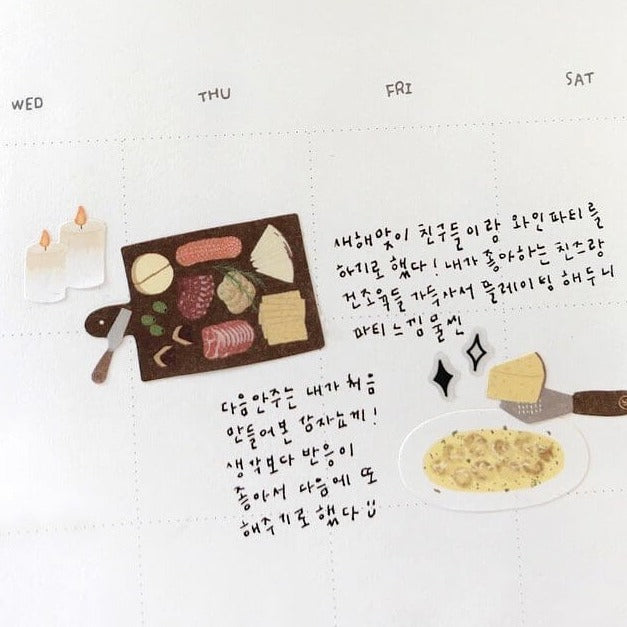 WED THU FRI SAT
새해맞이 친구들이랑 와인파티를
하기로 했다! 내가 좋아하는 치즈랑
건조육들 가득사서 플레이팅 해두니
파티느낌 물씬
다음안주는 내가 처음
만들어본 감자뇨끼!
생각보다 반응이
좋아서 다음에 또
해주기로 했다